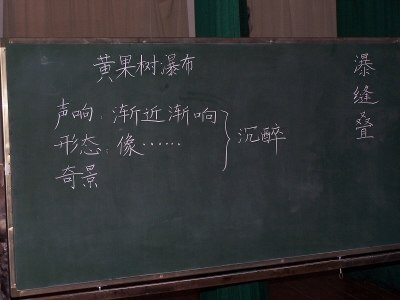 黄果树瀑布
声响：渐近渐响
形态：像……
奇景
沉醉
瀑
缝
叠